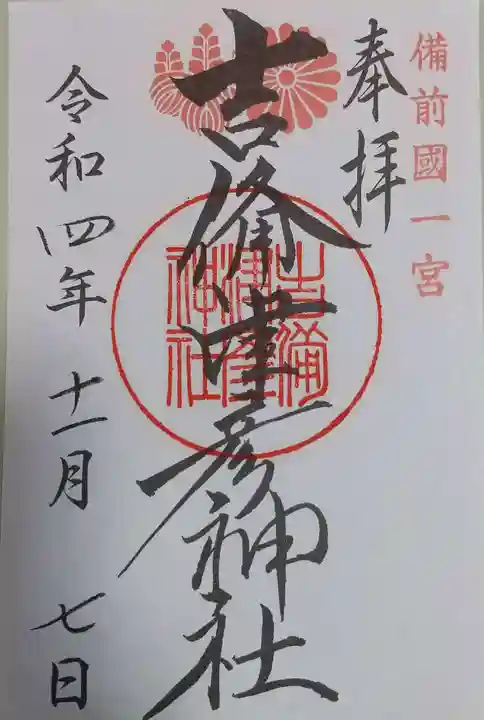 備前國一宮
奉拝
吉備津彦神社
吉備
津彦
神社
令和四年十一月七日